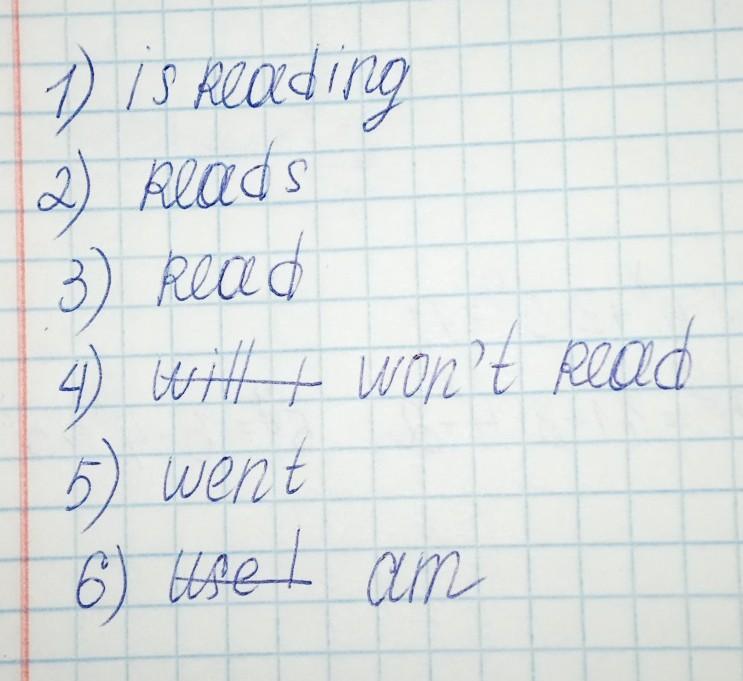 1) is reading
2) reads
3) read
4) will won't read
5) went
6) use am